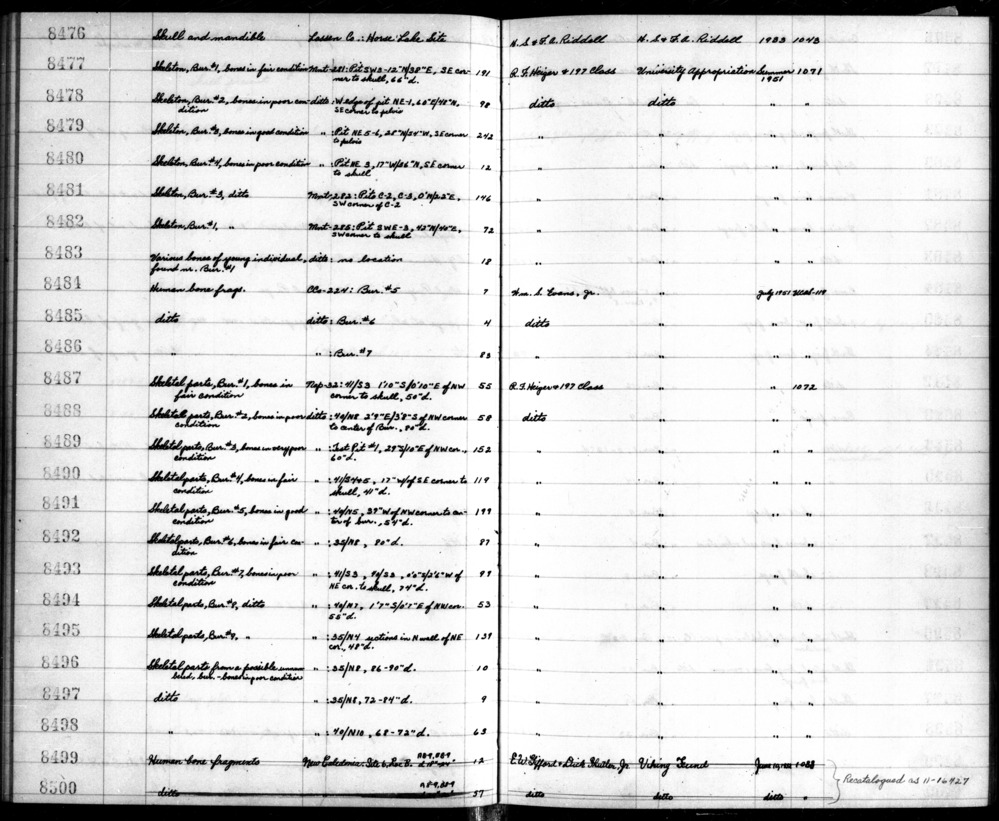 8476 Skull and mandible Lassen Co.: Horse Lake Site H. S. & F. A. Riddell H. S. & F. A. Riddell 1953 1043
8477 Skeleton, Bur. #1, bones in fair condition Mnt-281: Pit SW3-12" N/38" E, SE cor- 191 R. F. Heizer & 197 Class University Appropriation Summer 1071
ner to skull, 66" d. 1951
8478 Skeleton, Bur. #2, bones in poor con- ditto: W edge of pit NE-1, 60" E/48" N, 98 ditto ditto " "
dition SE corner to pelvis
8479 Skeleton, Bur. #3, bones in good condition " : Pit NE 5-6, 28" N/54" W, SE corner 242 " " " "
to pelvis
8480 Skeleton, Bur. #4, bones in poor condition " : Pit NE 3, 17" W/86" N, SE corner 12 " " " "
to skull
8481 Skeleton, Bur. #3, ditto Mnt-282: Pits C-2, C-3, 0" N/23" E, 146 " " " "
SW corner of C-2
8482 Skeleton, Bur. #1, " Mnt-285: Pit SWE-3, 42" N/40" E, 72 " " " "
SW corner to skull
8483 Various bones of young individual, ditto: no location 18 " " " "
found nr. Bur. #1
8484 Human bone frags. CCo-224: Bur. #5 7 Wm. S. Evans, Jr. " July 1951 UCAS-119
8485 ditto ditto: Bur. #6 4 ditto " " "
8486 " " : Bur. #7 83 " " " "
8487 Skeletal parts, Bur. #1, bones in Nap-32: 41/S3 1'10" S/0'10" E of NW 55 R. F. Heizer & 197 Class " " 1072
fair condition corner to skull, 50" d.
8488 Skeletal parts, Bur. #2, bones in poor ditto: 40/N8 2'9" E/3'8" S of NW corner 58 ditto " " "
condition to center of Bur., 90" d.
8489 Skeletal parts, Bur. #3, bones in very poor " : Test Pit #1, 29" S/10" E of NW cor., 152 " " " "
condition 60" d.
8490 Skeletal parts, Bur. #4, bones in fair " : 41/S4+5, 17" W of SE corner to 119 " " " "
condition skull, 41" d.
8491 Skeletal parts, Bur. #5, bones in good " : 40/N5, 39" W of NW corner to cen- 199 " " " "
condition ter of bur., 54" d.
8492 Skeletal parts, Bur. #6, bones in fair con- " : 35/N8, 80" d. 87 " " " "
dition
8493 Skeletal parts, Bur. #7, bones in poor " : 41/S3, 40/S3, 0'6" S/2'6" W of 99 " " " "
condition NE cor. to skull, 74" d.
8494 Skeletal parts, Bur. #8, ditto " : 40/N7, 1'7" S/0'7" E of NW cor. 53 " " " "
55" d.
8495 Skeletal parts, Bur. #9, " " : 35/N4 sections in N wall of NE 139 " " " "
cor., 48" d.
8496 Skeletal parts from a possible unnum- " : 35/N8, 86-90" d. 10 " " " "
bered, bur. - bones in poor condition
8497 ditto " : 35/N8, 72-84" d. 9 " " " "
8498 " " : 40/N10, 68-72" d. 63 " " " "
8499 Human bone fragments New Caledonia: Site 6, Loc B. 12 E. W. Gifford & Dick Shutler, Jr. Viking Fund 1088
Recatalogued as 11-16427
8500 ditto 57 ditto ditto ditto "